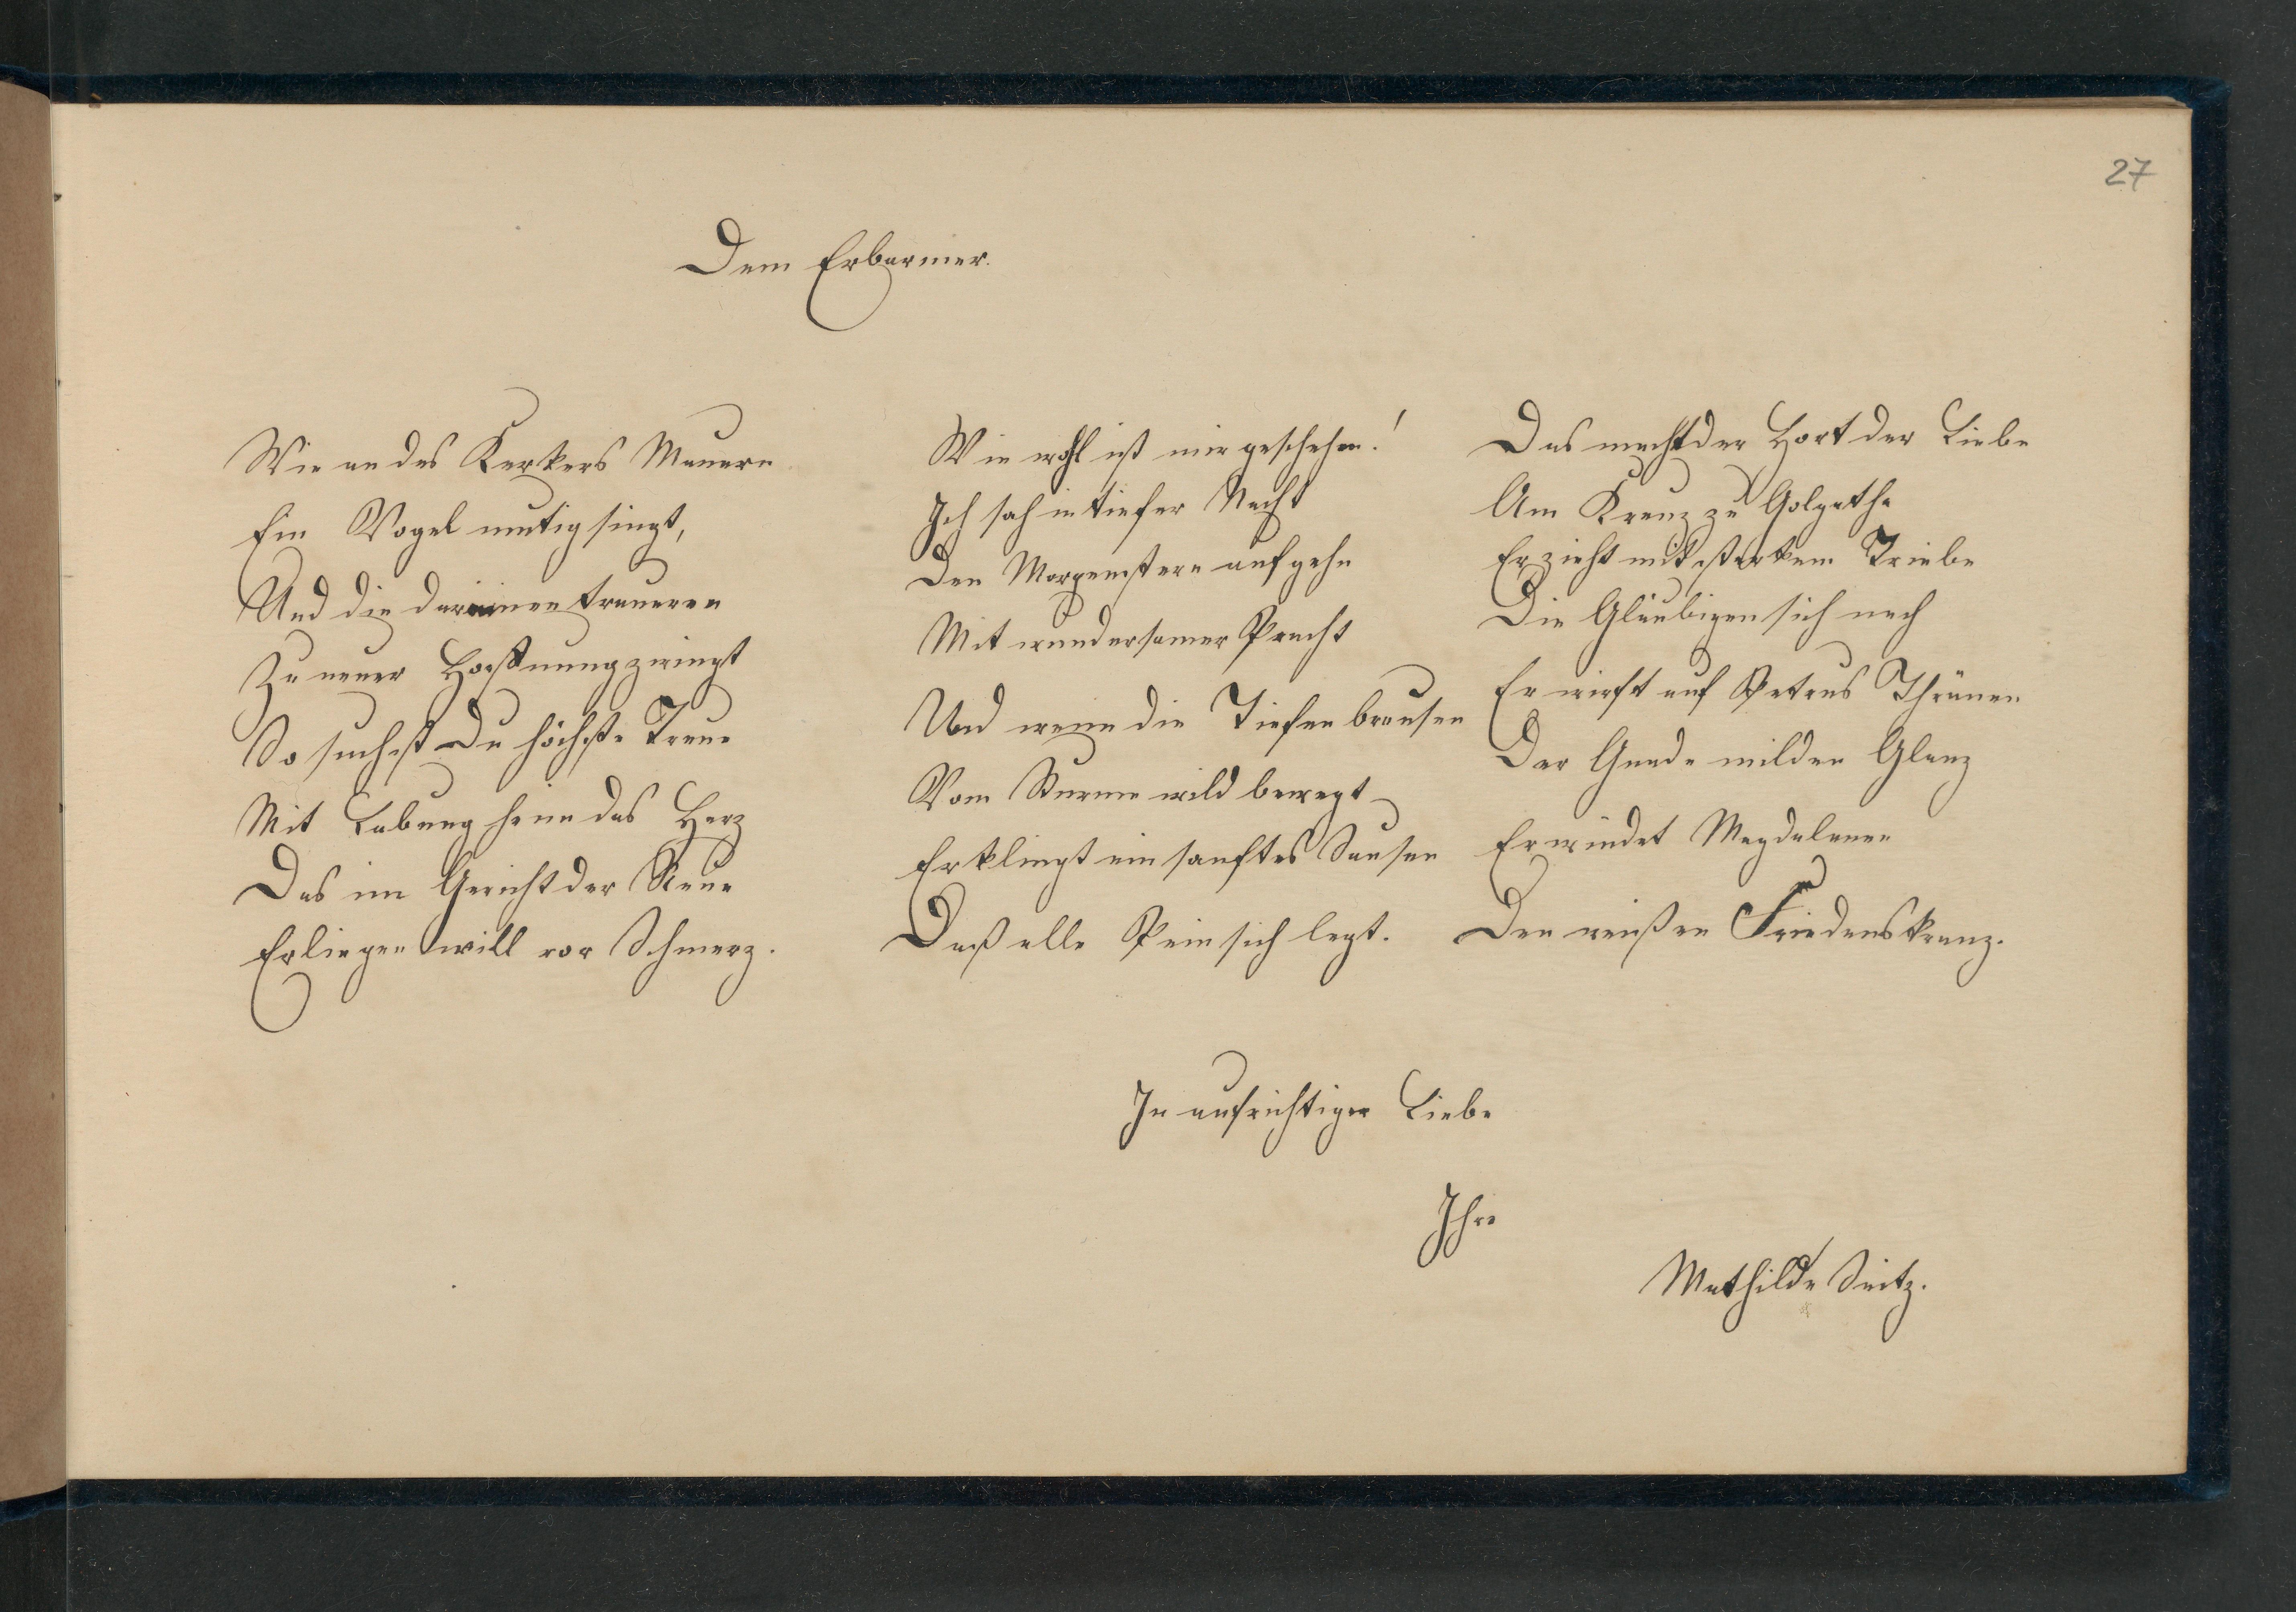 27
Dem Erbarmer.
Wie an des Kerkers Mauern
Ein Vogel mutig singt,
Und die darinnen trauern
Zu neuer Hoffnung zwingt
So suchst Du höchste Treue
Mit Labung heim das Herz
Das im Gericht der Reue
Erliegen will vor Schmerz.
Wie wohl ist mir geschehen!
Ich sah in tiefer Nacht
Den Morgenstern aufgehn
Mit wundersamer Pracht
Und wenn die Tiefen brausen
Vom Sturme wild bewegt
Erklingt ein sanftes Sausen
Daß alle Pein sich legt.
Das macht der Hort der Liebe
Am Kreuz zu Golgatha
Er zieht mit starkem Triebe
Die Gläubigen sich nach
Er wirft auf Petrus Thränen
Der Gnade milden Glanz
Er windet Magdalenen
Den weißen Friedenskranz.
In aufrichtiger Liebe
Ihre
Mathilde Seitz.